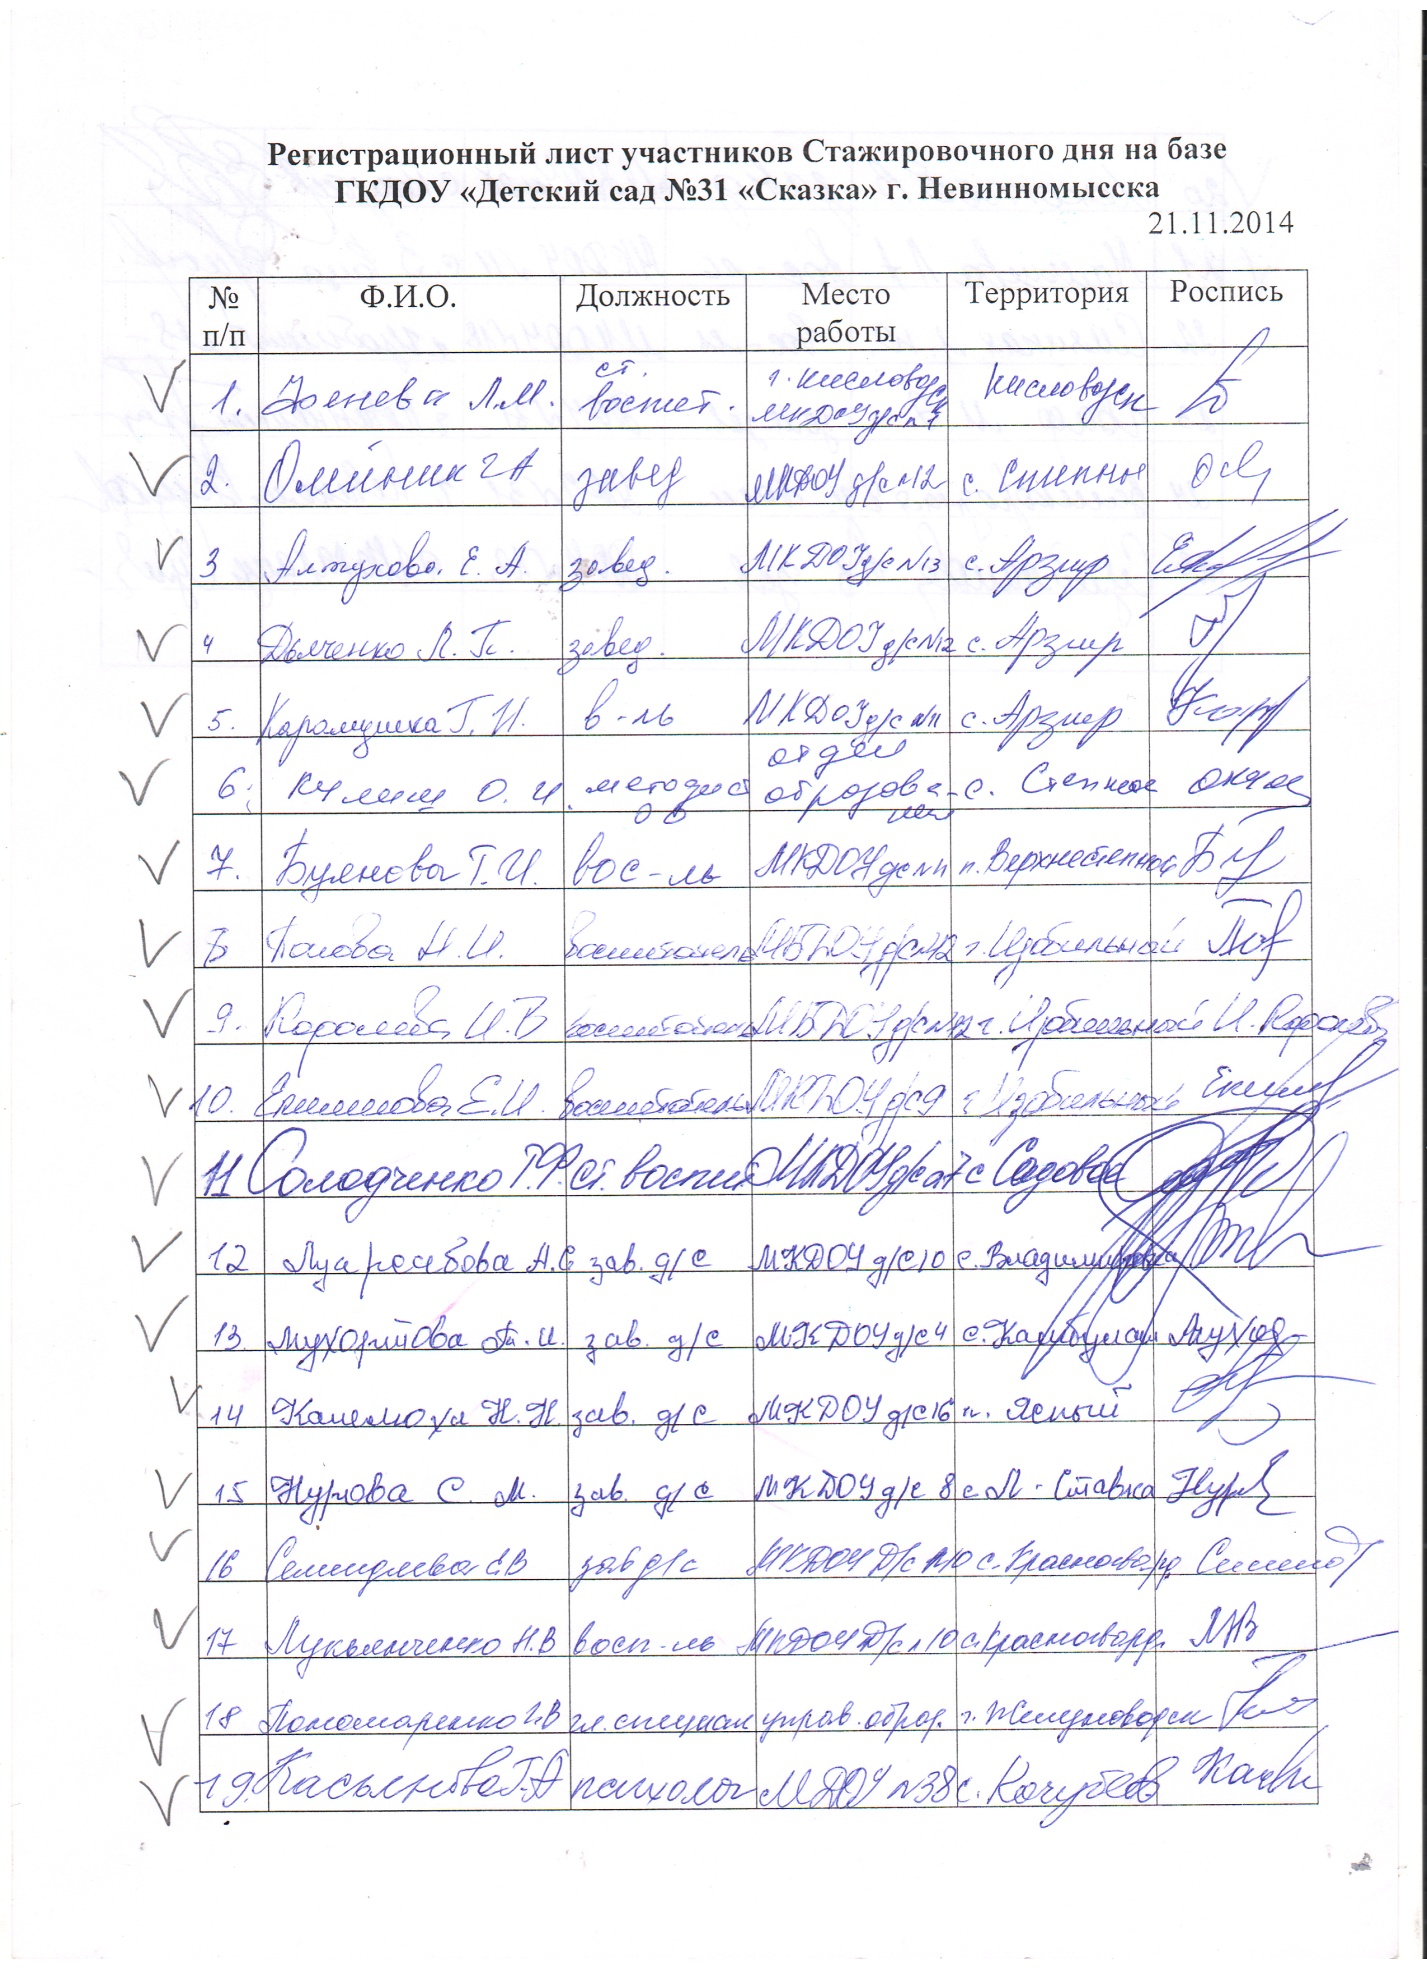 Регистрационный лист участников Стажировочного дня на базе
ГКДОУ «Детский сад №31 «Сказка» г. Невинномысска
21.11.2014
№ п/п Ф.И.О. Должность Место работы Территория Роспись
1. Л.М. ст. воспит. г. Кисловодск МКДОУ д/с №7 Кисловодск
2. Олейник Г А завед МКДОУ д/с №12 с. Степное
3 Алтухова Е. А. завед. МКДОУ д/с №13 с. Арзгир
4 Дьяченко Л. П. завед. МКДОУ д/с №12 с. Арзгир
5. Карамушка Г. И. в-ль МКДОУ д/с №11 с. Арзгир
6. Кулиш О. И. методист ОО отдел образования с. Степное
7. Буянова Т. И. вос-ль МКДОУ дс №11 п. Верхнестепной
8 Попова Н. И. воспитатель МБДОУ д/с №12 г. Изобильный
9. Королева И. В воспитатель МБДОУ д/с №12 г. Изобильный И. Королева
10. Е.И. воспитатель МКДОУ д/с 9 г Изобильный
11 Солодченко Т.Ф. ст. воспит МКДОУ д/с №7 с Садовое
12 А.С зав. д/с МКДОУ д/с 10 с. Владимировка
13. Мухортова Т. И. зав. д/с МКДОУ д/с 4 с. Камбулат Мухор
14 Н. Н. зав. д/с МКДОУ д/с 16 п. Ясный
15 Нурова С. М. зав. д/с МКДОУ д/с 8 с М-Ставка Нур
16 Е В зав д/с МКДОУ Д/с №10 с. Красногвард
17 Лукьянченко Н. В восп-ль МКДОУ Д/с №10 с. Красногвард.
18 Пономаренко И. В гл. специал управ. образ. г. Железноводск
19. Касьянова Т. А психолог МДОУ №38 с. Кочубеев